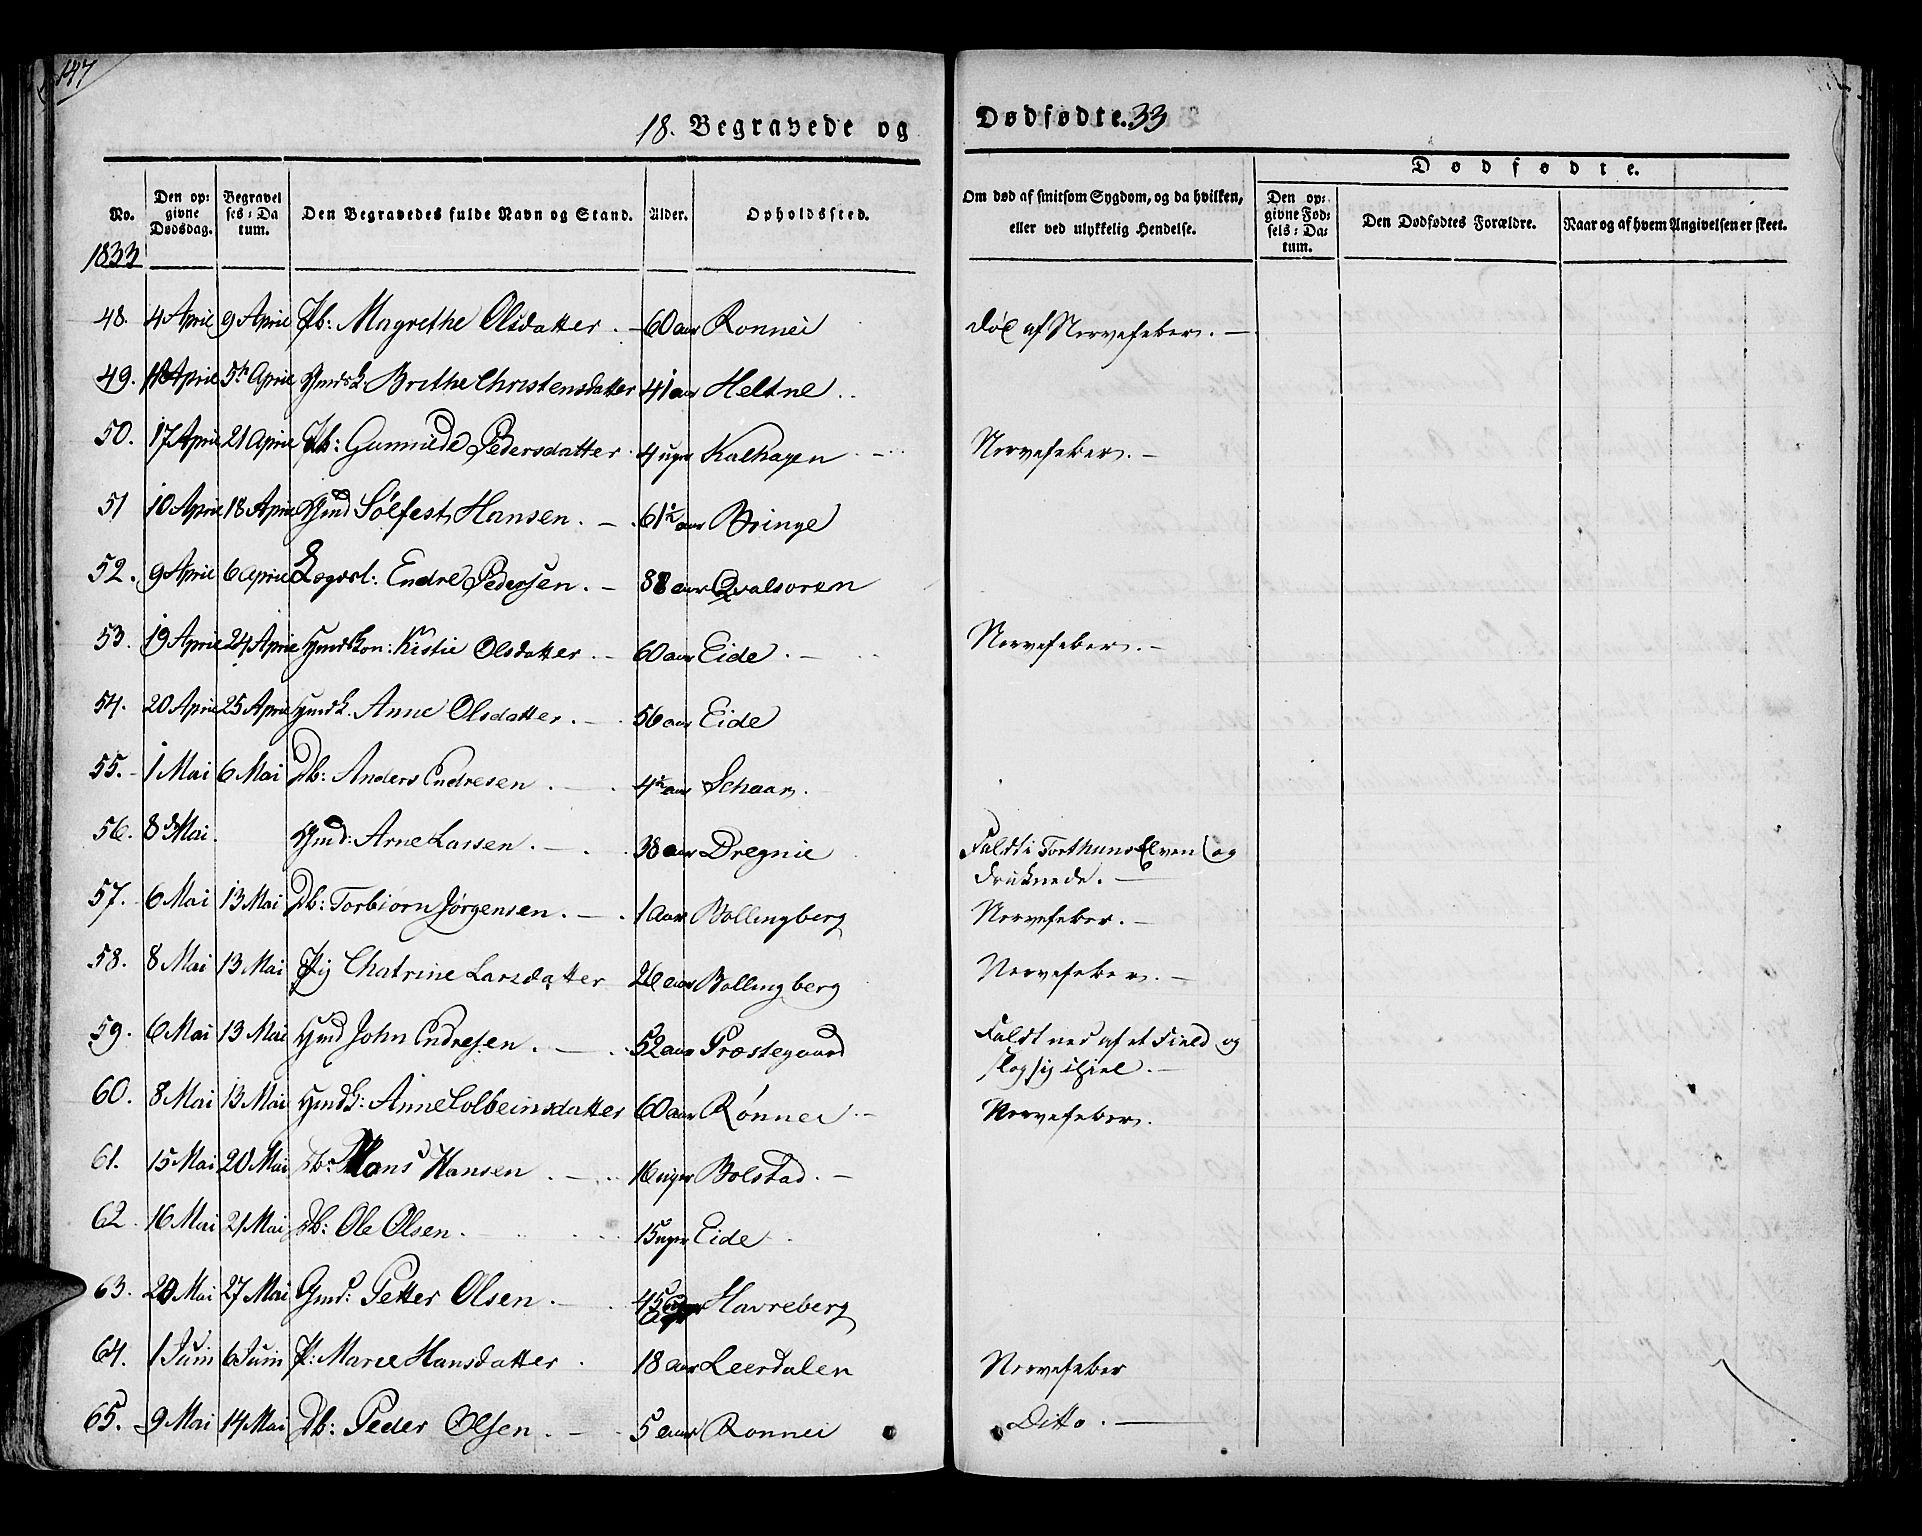 147
18. Begravede og Dødfødte. 33
Dødfødte.
No. Den opgivne Dødsdag. Begravelses-Datum. Den Begravedes fulde Navn og Stand. Alder. Opholdssted. Om død af smitsom Sygdom, og da hvilken, eller ved ulykkelig Hendelse. Den opgivne Fødsels-Datum. Den Dødfødtes Forældre. Naar og af hvem Angivelsen er skeet.
1833
48. 4 April 9 April Pb: Magrethe Olsdatter. — 60 aar Ronnei død af Nervefeber. —
49. April 5te April Hmdsk Brithe Christensdatter 41 aar Heltne..
50. 17 April 21 April Pb: Gunnilde Pedersdatter. 4 uger Kalhagen — Nervefeber. —
51 10 April 18 April Hmd Sølfest Hansen. — 61½ aar Bringe
52. 9 April 6 April Lægdsl: Endre Pedersen. — 88 aar Qvalsoren
53. 19 April 24 April Hmdskon: Kistie Olsdatter. — 60 aar Eide. — Nervefeber. —
54. 20 April 25 April Hmdk. Anne Olsdatter. — 56 aar Eide
55. 1 Mai 6 Mai Db: Anders Endresen. — 4½ aar Schaar.
56. 8de Mai. Hmd: Arne Larsen. — 38 aar Dregnie Faldt i Forthuns Elven og
druknede. —
57. 6 Mai 13 Mai Db: Torbiorn Jørgensen. — 1 Aar Bollingberg Nervefeber. —
58. 8 Mai 13 Mai Pig Chatrine Larsdatter 26 aar Bollingberg Nervefeber. —
59. 6 Mai 13 Mai Hmd John Endresen. — 52 aar Præstegaard Faldt ned af et Field og
slog sig ihiel. —
60. 8 Mai 13 Mai Hmdk: Anne Colbeinsdatter 60 aar Rønnei — Nervefeber.
61. 15 Mai 20 Mai Db: Mons Hansen. — 16 uger Bolstad. —
62 16 Mai 21 Mai Db: Ole Olsen. 15 uger Eide
63. 20 Mai 27 Mai Gmd: Petter Olsen. — 45 Havreberg
64. 1 Juni 6 Juni P: Marie Hansdatter. 18 aar Leerdalen Nervefeber
65. 9 Mai 14 Mai Db: Peder Olsen. — 5 aar Ronnei Ditto. —